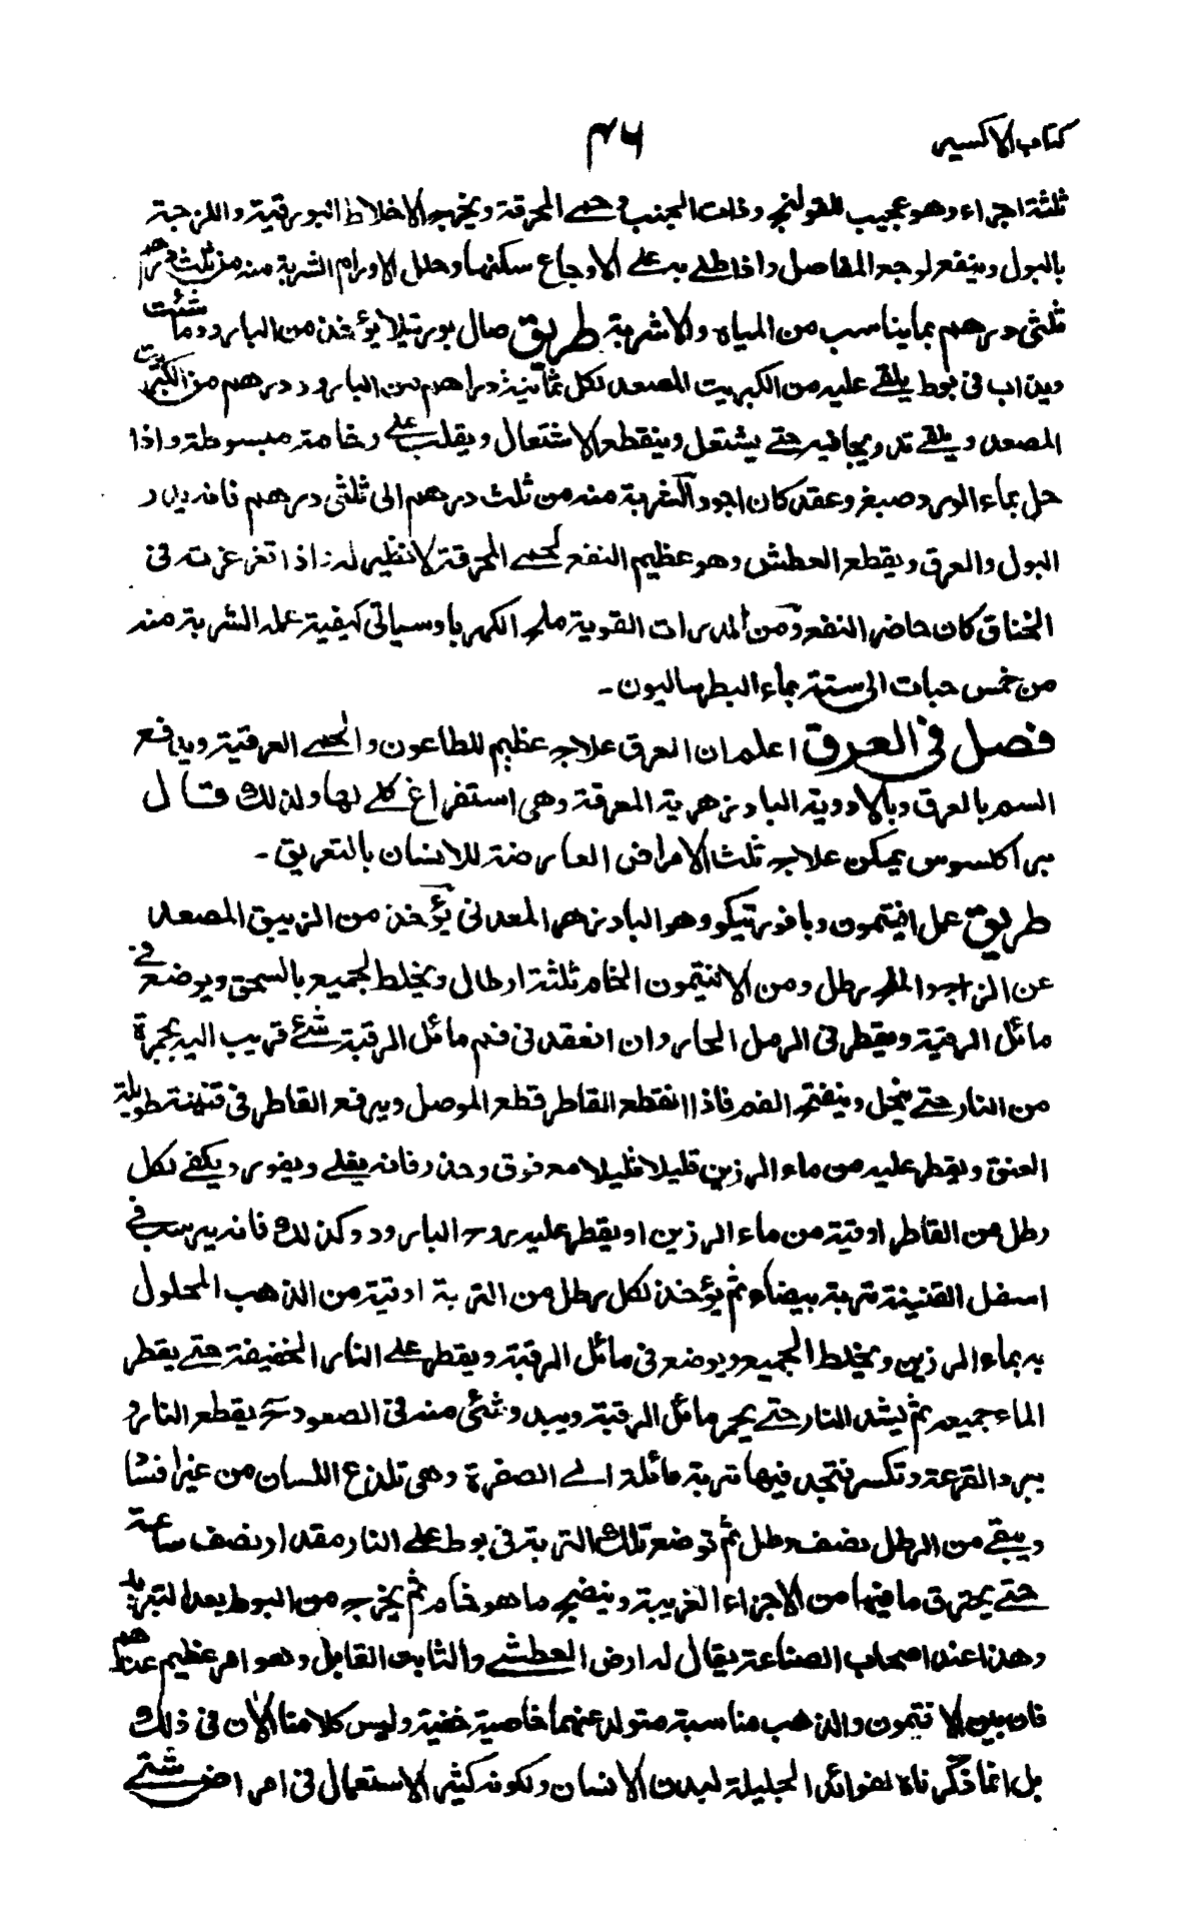 كتاب الاكسير ۴۶
ثلثة اجزاء وهو عجيب للقولنج وذات الجنب فى حمے المحرقة ويخرج الاخلاط البورقية واللزجة
بالبول وينفع لوجع المفاصل واذا طلے به علے الاوجاع سكنها وحلل الاورام الشربة منه من ثلث درهم
ثلثى درهم بما يناسب من المياه والاشربة طريق صال بورتيلا يؤخذ من البارود ما شئت
ويذاب فى بوط يلقے عليه من الكبريت المصعد لكل ثمانية دراهم من البارود درهم من الكبريت
المصعد ويلقے تدريجا فيه حتے يشتعل وينقطع الاشتعال ويقلب علے رخامة مبسوطة واذا
حل بماء الورد وصبغ وعقد كان اجود الشربة منه من ثلث درهم الى ثلثى درهم فانه يدر
البول والعرق ويقطع العطش وهو عظيم النفع لحمے المحرقة لا نظير له اذا تغرغرت فى
الخناق كان حاضر النفع ومن المدرات القوية ملح الكهربا وسياتى كيفية عمله الشربة منه
من خمس حبات الى ستة بماء البطرساليون۔
فصل فى العرق اعلم ان العرق علاج عظيم للطاعون والحمے العرقية ويدافع
السم بالعرق وبالادوية البادزهرية المعرقة وهى استفراغ كلے لها ولذلك قال
براكلسوس يمكن علاج ثلث الامراض العارضة للانسان بالتعريق۔
طريق عمل انيتمون وبافورتيكو وهو البادزهر المعدنى يؤخذ من الزيبق المصعد
عن الزاج والملح رطل ومن الانتيمون الخام ثلثة ارطال ويخلط الجميع بالسحق ويوضع فى
مائل الرقبة ويقطر فى الرمل الحار وان انعقد فى فم مائل الرقبة شئ قريب اليه بجمرة
من النار حتے ينحل وينفتح الفم فاذا انقطع القاطر قطع الموصل ويرفع القاطر فى قنينة طويلة
العنق ويقطر عليه من ماء الرزين قليلا قليلا مع فوق وحذر فانه يغلے ويفور ويكفے لكل
رطل من القاطر اوقية من ماء الرزين او يقطر عليه روح البارود وكذلك فانه يرسب فى
اسفل القنينة تربة بيضاء ثم يؤخذ لكل رطل من التربة اوقية من الذهب المحلول
به بماء الرزين ويخلط الجميع ويوضع فى مائل الرقبة ويقطر علے النار الخفيفة حتے يقطر
الماء جميعه ثم يشد النار حتے يحمر مائل الرقبة ويبدو شئ منه فى الصعود يقطع النار و
يبرد القرعة وتكسر فتجد فيها تربة مائلة الے الصفرة وهى تلذع اللسان من غير افشا
ويبقے من الرطل نصف رطل ثم توضع تلك التربة فى بوط علے النار مقدار نصف ساعة
حتے يحترق ما فيها من الاجزاء الغريبة وينضج ما هو خام ثم يخرج من البوط بعد التبريد
وهذا عند اصحاب الصناعة يقال له ارض العطشے والثابت القابل وهو امر عظيم عندهم
فان بين الانتيمون والذهب مناسبة متولد عنهما خاصية خفية وليس كلامنا الان فى ذلك
بل انما ذكرناه لفوائده الجليلة لبدن الانسان ولكونه كثير الاستعمال فى امراض شتے